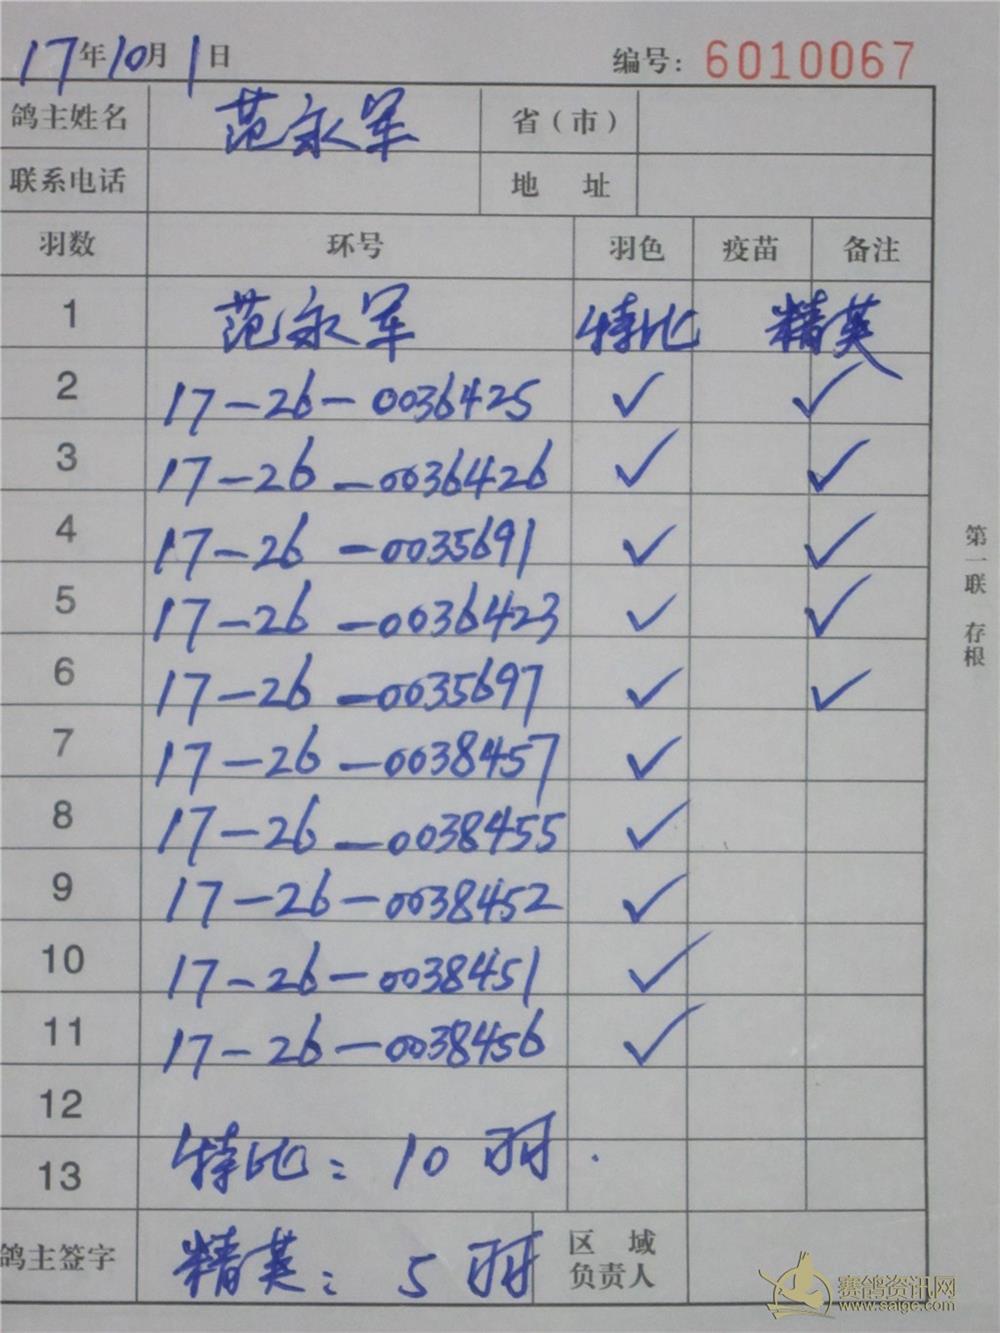 17年10月1日 编号: 6010067
鸽主姓名 范永军 省（市）
联系电话 地 址
羽数 环号 羽色 疫苗 备注
1 范永军 特比 精英
2 17-26-0036425 ✓ ✓
3 17-26-0036426 ✓ ✓
4 17-26-0035691 ✓ ✓
5 17-26-0036423 ✓ ✓
6 17-26-0035697 ✓ ✓
7 17-26-0038457 ✓
8 17-26-0038455 ✓
9 17-26-0038452 ✓
10 17-26-0038451 ✓
11 17-26-0038456 ✓
12
13 特比: 10羽.
鸽主签字 精英: 5羽 区域负责人
第一联 存根
赛鸽资讯网
www.saigc.com